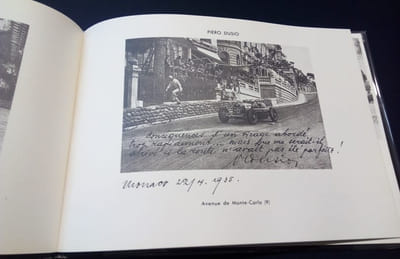 PIERO DUSIO
conséquences d'un virage abordé
trop rapidement... mais que serait-il
si la route n'avait pas été parfaite!
Monaco 22/4. 1935.
Avenue de Monte-Carlo (9)